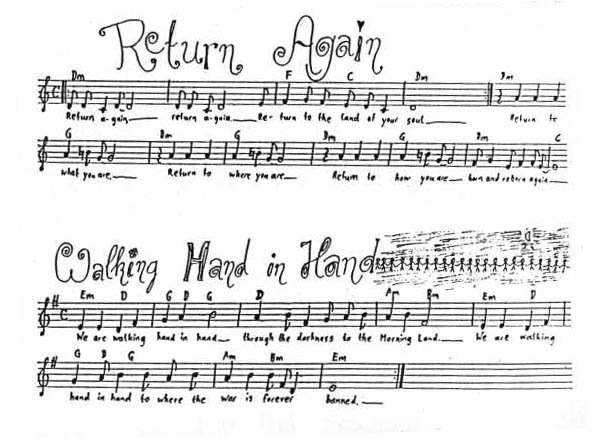 Return Again
Dm F C Dm Dm
Return a-gain___ return a-gain___ Re-turn to the land of your soul___ Return to
G Dm G Dm G Dm C
what you are___ Return to where you are___ Return to how you are___ born and reborn again___
Walking Hand in Hand
Em D G D G D Am Bm Em D
We are walking hand in hand___ through the darkness to the Morning Land___ We are walking
G D G Am Bm Em
hand in hand to where the war is forever banned.___